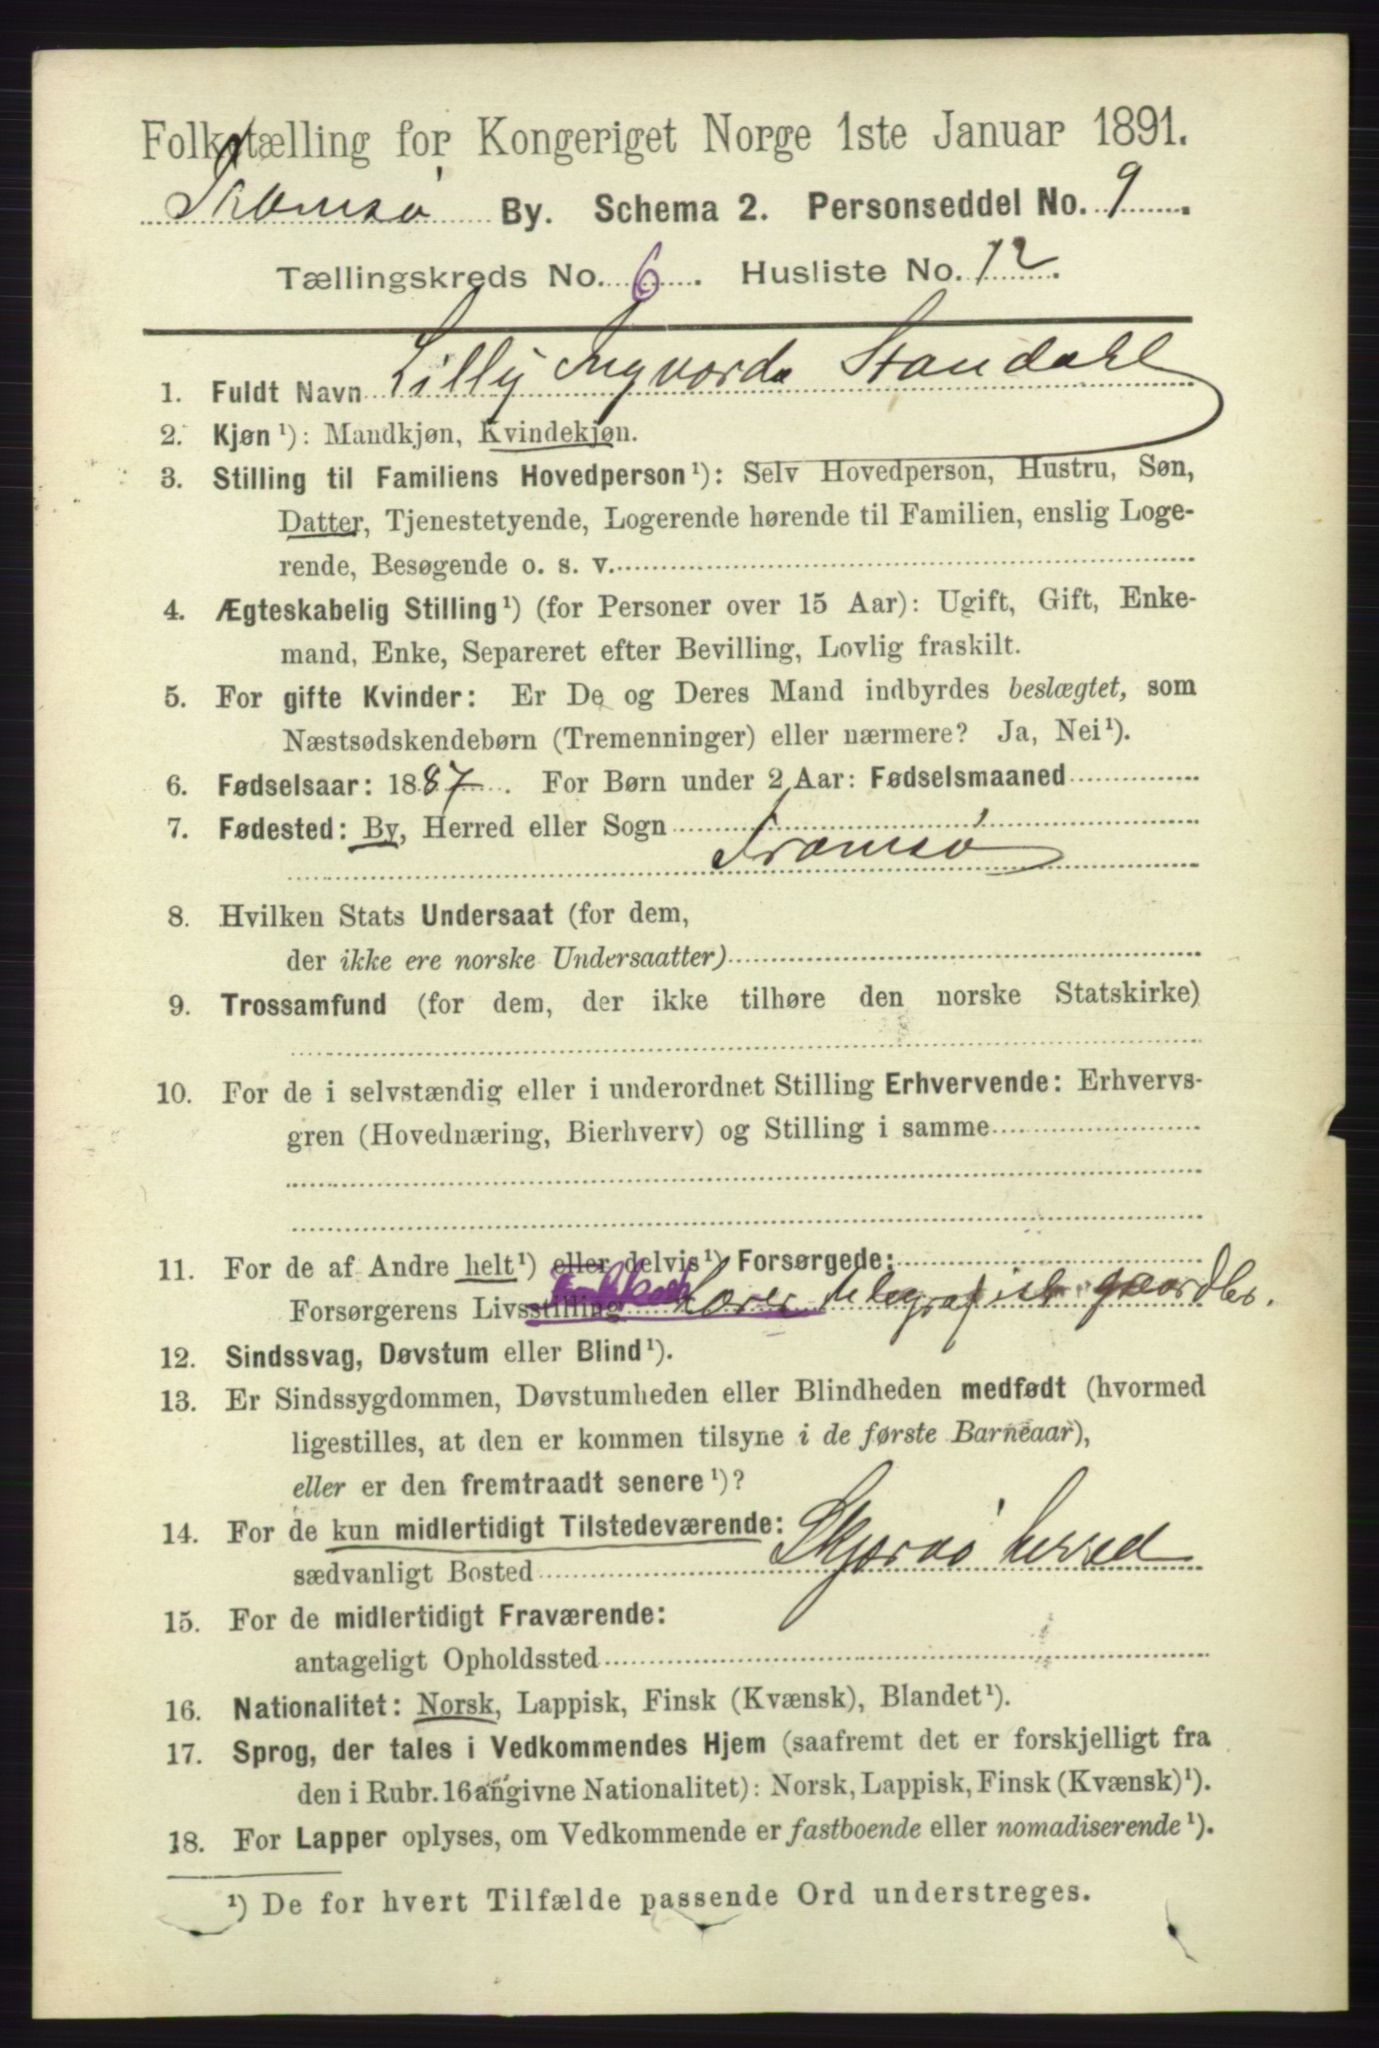 Folketælling for Kongeriget Norge 1ste Januar 1891.
Tromsø By. Schema 2. Personseddel No. 9.
Tællingskreds No. 6. Husliste No. 12.
1. Fuldt Navn Lilly Ingvarda Standahl
2. Kjøn ¹): Mandkjøn, Kvindekjøn.
3. Stilling til Familiens Hovedperson ¹): Selv Hovedperson, Hustru, Søn,
Datter, Tjenestetyende, Logerende hørende til Familien, enslig Loge-
rende, Besøgende o. s. v.
4. Ægteskabelig Stilling ¹) (for Personer over 15 Aar): Ugift, Gift, Enke-
mand, Enke, Separeret efter Bevilling, Lovlig fraskilt.
5. For gifte Kvinder: Er De og Deres Mand indbyrdes beslægtet, som
Næstsødskendebørn (Tremenninger) eller nærmere? Ja, Nei ¹).
6. Fødselsaar: 1887. For Børn under 2 Aar: Fødselsmaaned
7. Fødested: By, Herred eller Sogn
Tromsø
8. Hvilken Stats Undersaat (for dem,
der ikke ere norske Undersaatter)
9. Trossamfund (for dem, der ikke tilhøre den norske Statskirke)
10. For de i selvstændig eller i underordnet Stilling Erhvervende: Erhvervs-
gren (Hovednæring, Bierhverv) og Stilling i samme
11. For de af Andre helt ¹) eller delvis ¹) Forsørgede:
Forsørgerens Livsstilling Lærer telegrafist gaardbr.
12. Sindssvag, Døvstum eller Blind ¹).
13. Er Sindssygdommen, Døvstumheden eller Blindheden medfødt (hvormed
ligestilles, at den er kommen tilsyne i de første Barneaar),
eller er den fremtraadt senere ¹)?
14. For de kun midlertidigt Tilstedeværende:
sædvanligt Bosted Skjærvø herred
15. For de midlertidigt Fraværende:
antageligt Opholdssted
16. Nationalitet: Norsk, Lappisk, Finsk (Kvænsk), Blandet ¹).
17. Sprog, der tales i Vedkommendes Hjem (saafremt det er forskjelligt fra
den i Rubr. 16 angivne Nationalitet): Norsk, Lappisk, Finsk (Kvænsk) ¹).
18. For Lapper oplyses, om Vedkommende er fastboende eller nomadiserende ¹).
¹) De for hvert Tilfælde passende Ord understreges.